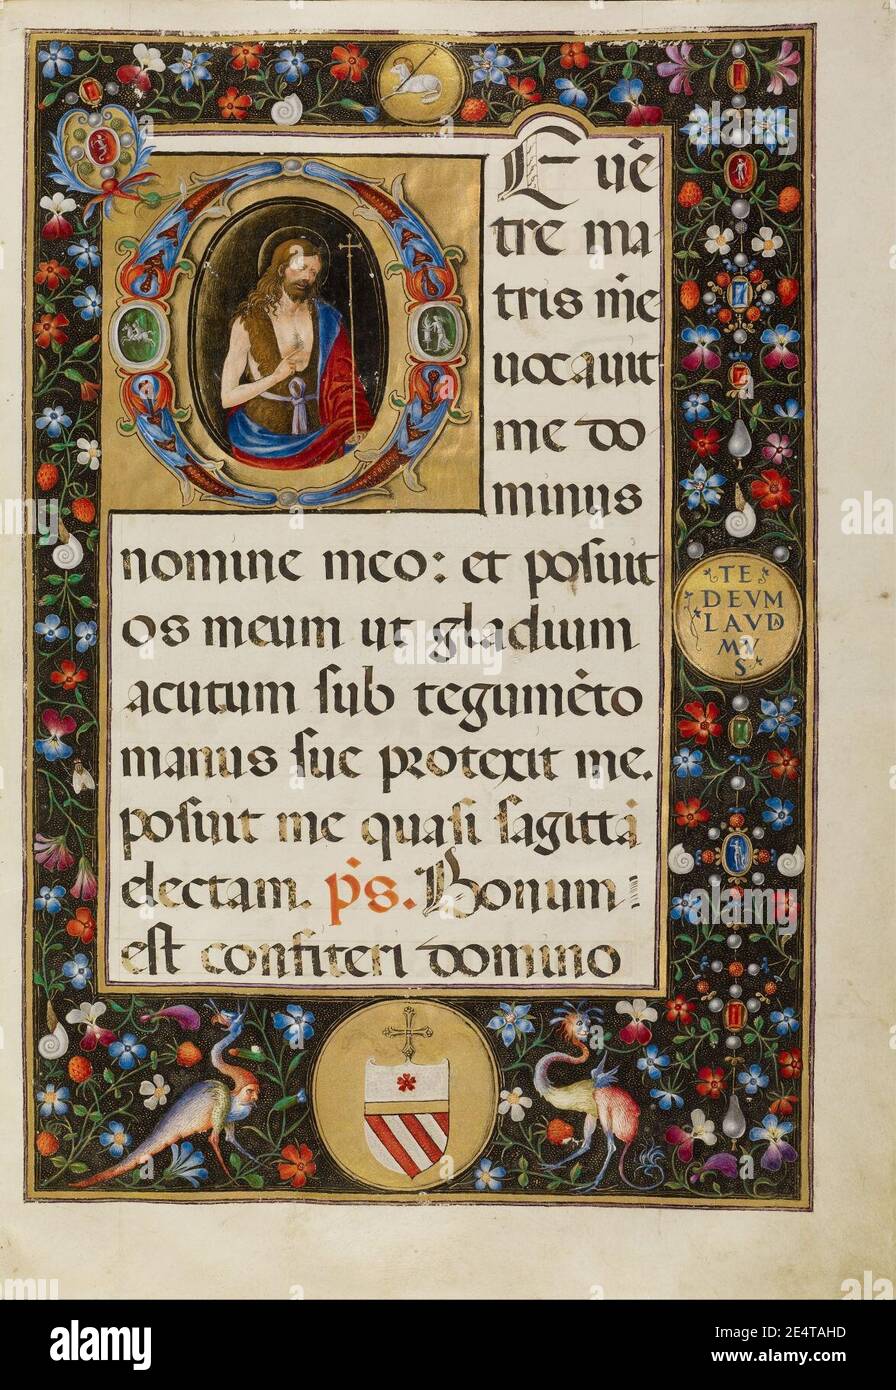 De vē
tre ma
tris mē
uocauit
me do
minus
nomine meo: et posuit
os meum ut gladium
acutum sub tegumēto
manus sue protexit me.
posuit me quasi sagittā
electam. p̄s. Bonum
est confiteri domino
TE
DEVM
LAVD
MV
S
a
alamy
Image ID: 2E4TAHD
www.alamy.com